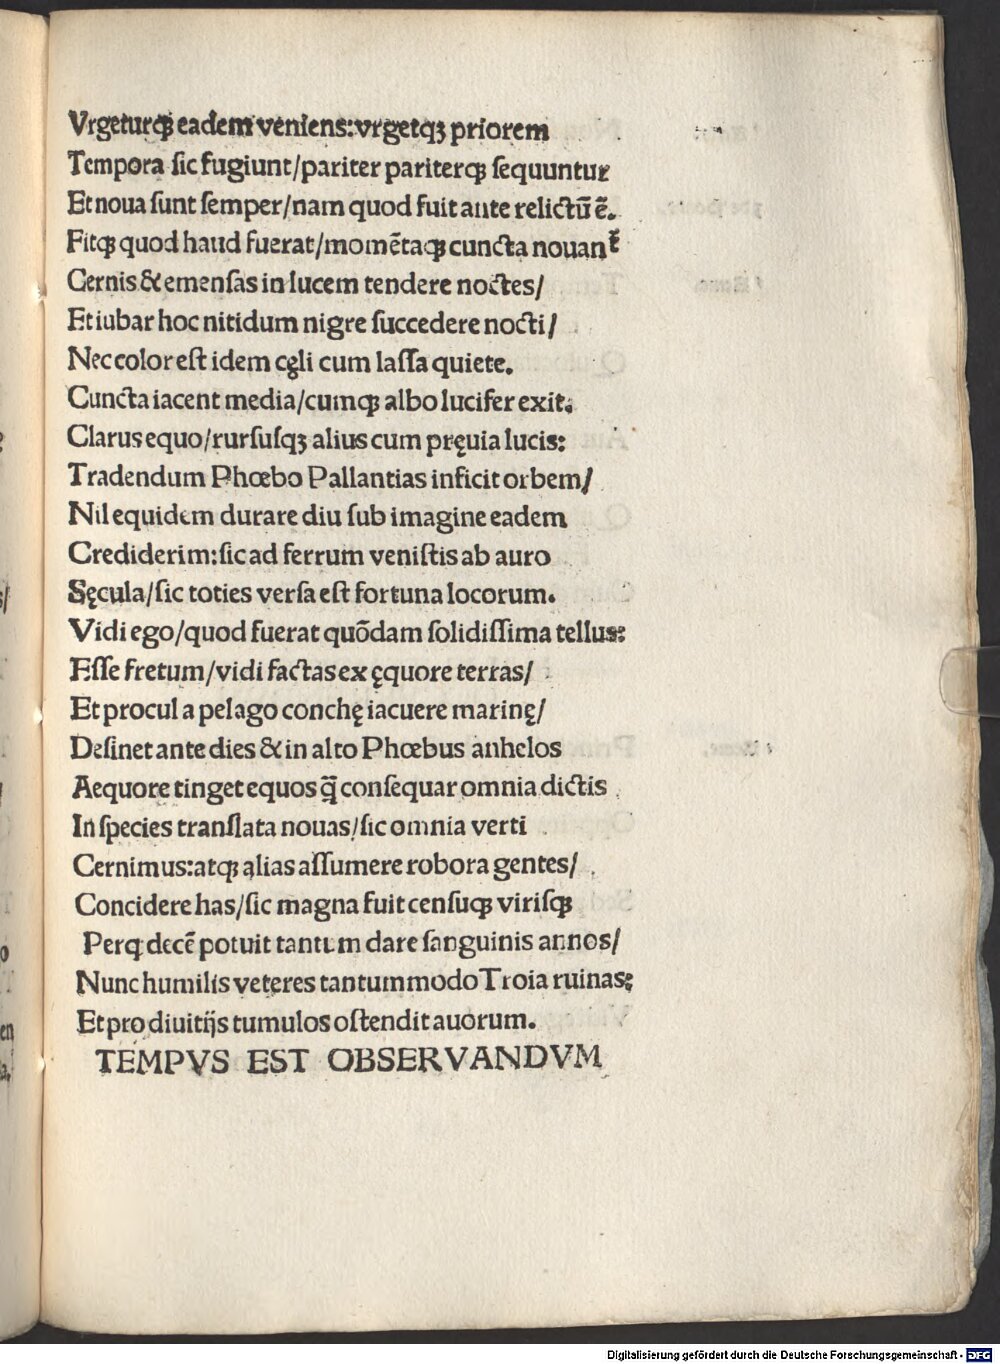 Vrgeturq; eadem veniens:vrgetq; priorem
Tempora ſic fugiunt/pariter pariterq; ſequuntur
Et noua ſunt ſemper/nam quod fuit ante relictū ē.
Fitq; quod haud fuerat/momētaq; cuncta nouant᷑
Cernis & emenſas in lucem tendere noctes/
Et iubar hoc nitidum nigre ſuccedere nocti/
Nec color eſt idem cęli cum laſſa quiete.
Cuncta iacent media/cumq; albo lucifer exit.
Clarus equo/rurſuſq; alius cum pręuia lucis:
Tradendum Phœbo Pallantias inficit orbem/
Nil equidem durare diu ſub imagine eadem
Crediderim:ſic ad ferrum veniſtis ab auro
Sęcula/ſic toties verſa eſt fortuna locorum.
Vidi ego/quod fuerat quōdam ſolidiſſima tellus:
Eſſe fretum/vidi factas ex ęquore terras/
Et procul a pelago conchę iacuere marinę/
Deſinet ante dies & in alto Phœbus anhelos
Aequore tinget equos q̄ conſequar omnia dictis
In ſpecies tranſlata nouas/ſic omnia verti
Cernimus:atq; alias aſſumere robora gentes/
Concidere has/ſic magna fuit cenſuq; viriſq;
Perq; decē potuit tantum dare ſanguinis annos/
Nunc humilis veteres tantummodo Troia ruinas:
Et pro diuitijs tumulos oſtendit auorum.
TEMPVS EST OBSERVANDVM
Digitalisierung gefördert durch die Deutsche Forschungsgemeinschaft - DFG